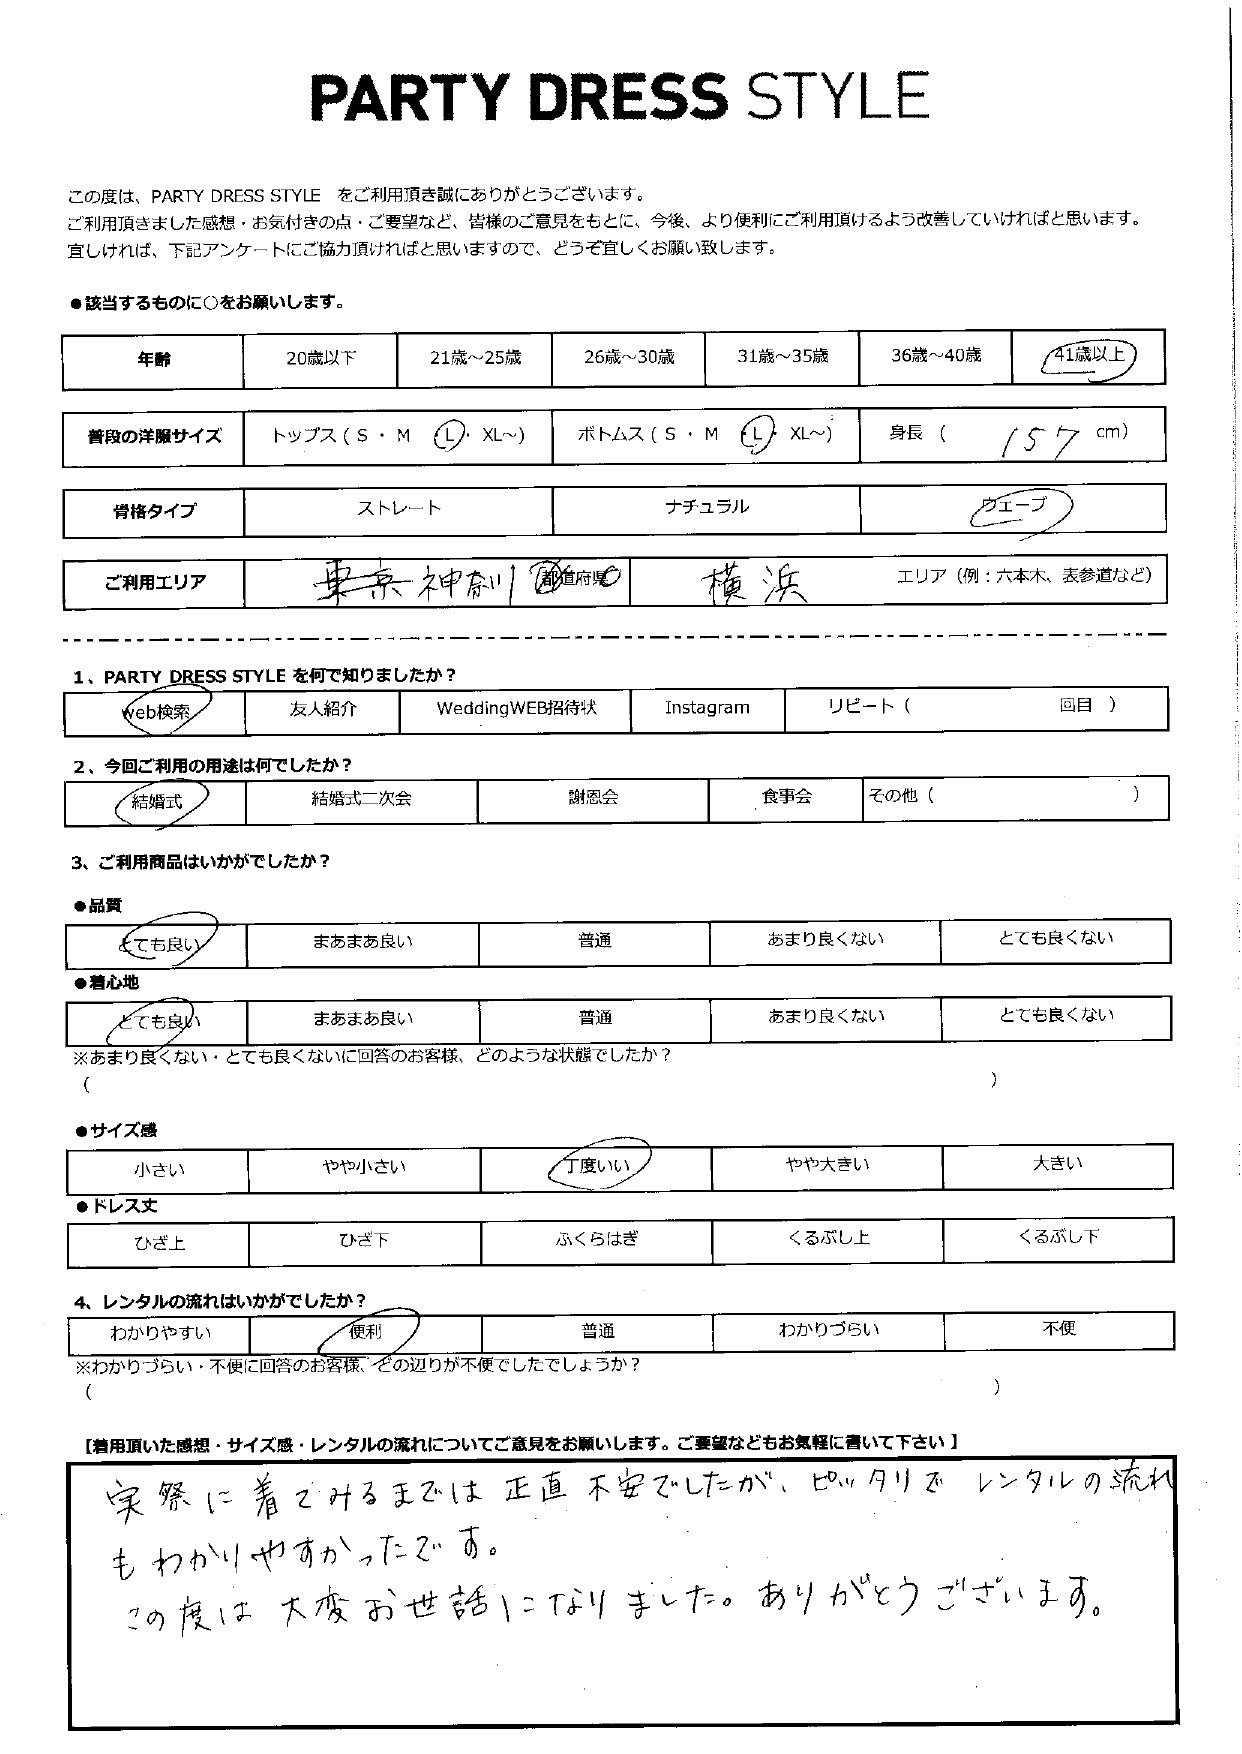 PARTY DRESS STYLE
この度は、PARTY DRESS STYLE　をご利用頂き誠にありがとうございます。
ご利用頂きました感想・お気付きの点・ご要望など、皆様のご意見をもとに、今後、より便利にご利用頂けるよう改善していければと思います。
宜しければ、下記アンケートにご協力頂ければと思いますので、どうぞ宜しくお願い致します。
●該当するものに○をお願いします。
年齢 20歳以下 21歳～25歳 26歳～30歳 31歳～35歳 36歳～40歳 41歳以上
普段の洋服サイズ トップス（ S ・ M L・ XL～） ボトムス（ S ・ M L・ XL～） 身長（ 157 cm）
骨格タイプ ストレート ナチュラル ウェーブ
ご利用エリア 東京 神奈川 都道府県 横浜 エリア（例：六本木、表参道など）
1、PARTY DRESS STYLE を何で知りましたか？
web検索 友人紹介 WeddingWEB招待状 Instagram リピート（ 回目 ）
2、今回ご利用の用途は何でしたか？
結婚式 結婚式二次会 謝恩会 食事会 その他（ ）
3、ご利用商品はいかがでしたか？
●品質
とても良い まあまあ良い 普通 あまり良くない とても良くない
●着心地
とても良い まあまあ良い 普通 あまり良くない とても良くない
※あまり良くない・とても良くないに回答のお客様、どのような状態でしたか？
（ ）
●サイズ感
小さい やや小さい 丁度いい やや大きい 大きい
●ドレス丈
ひざ上 ひざ下 ふくらはぎ くるぶし上 くるぶし下
4、レンタルの流れはいかがでしたか？
わかりやすい 便利 普通 わかりづらい 不便
※わかりづらい・不便に回答のお客様、どの辺りが不便でしたでしょうか？
（ ）
【着用頂いた感想・サイズ感・レンタルの流れについてご意見をお願いします。ご要望などもお気軽に書いて下さい 】
実祭に着てみるまでは正直不安でしたが、ピッタリでレンタルの流れ
もわかりやすかったです。
この度は大変お世話になりました。ありがとうございます。